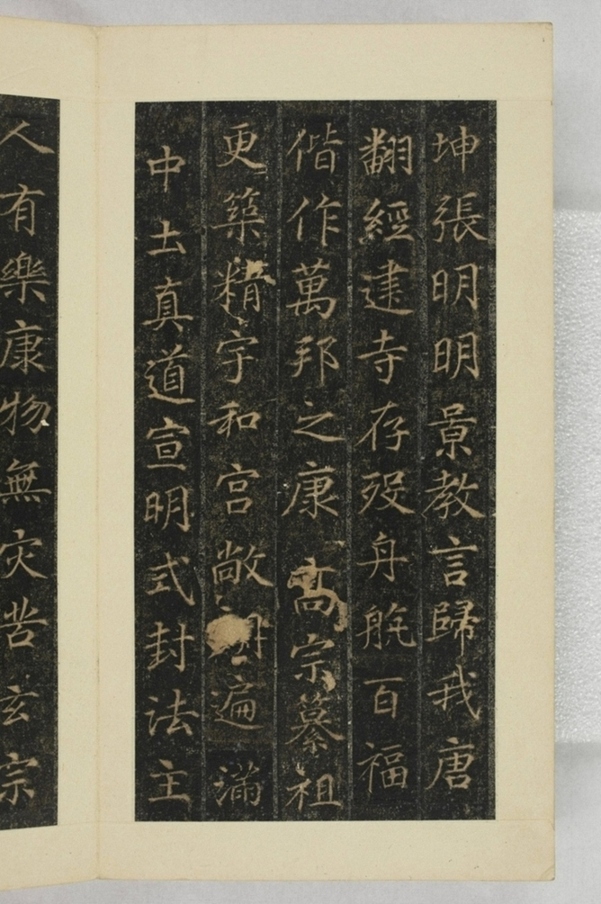 坤張明明景教言歸我唐
翻經建寺存殁舟航百福
偕作萬邦之康高宗纂祖
更築精宇和宫敞朗遍滿
中土真道宣明式封法主
人有樂康物無灾苦玄宗